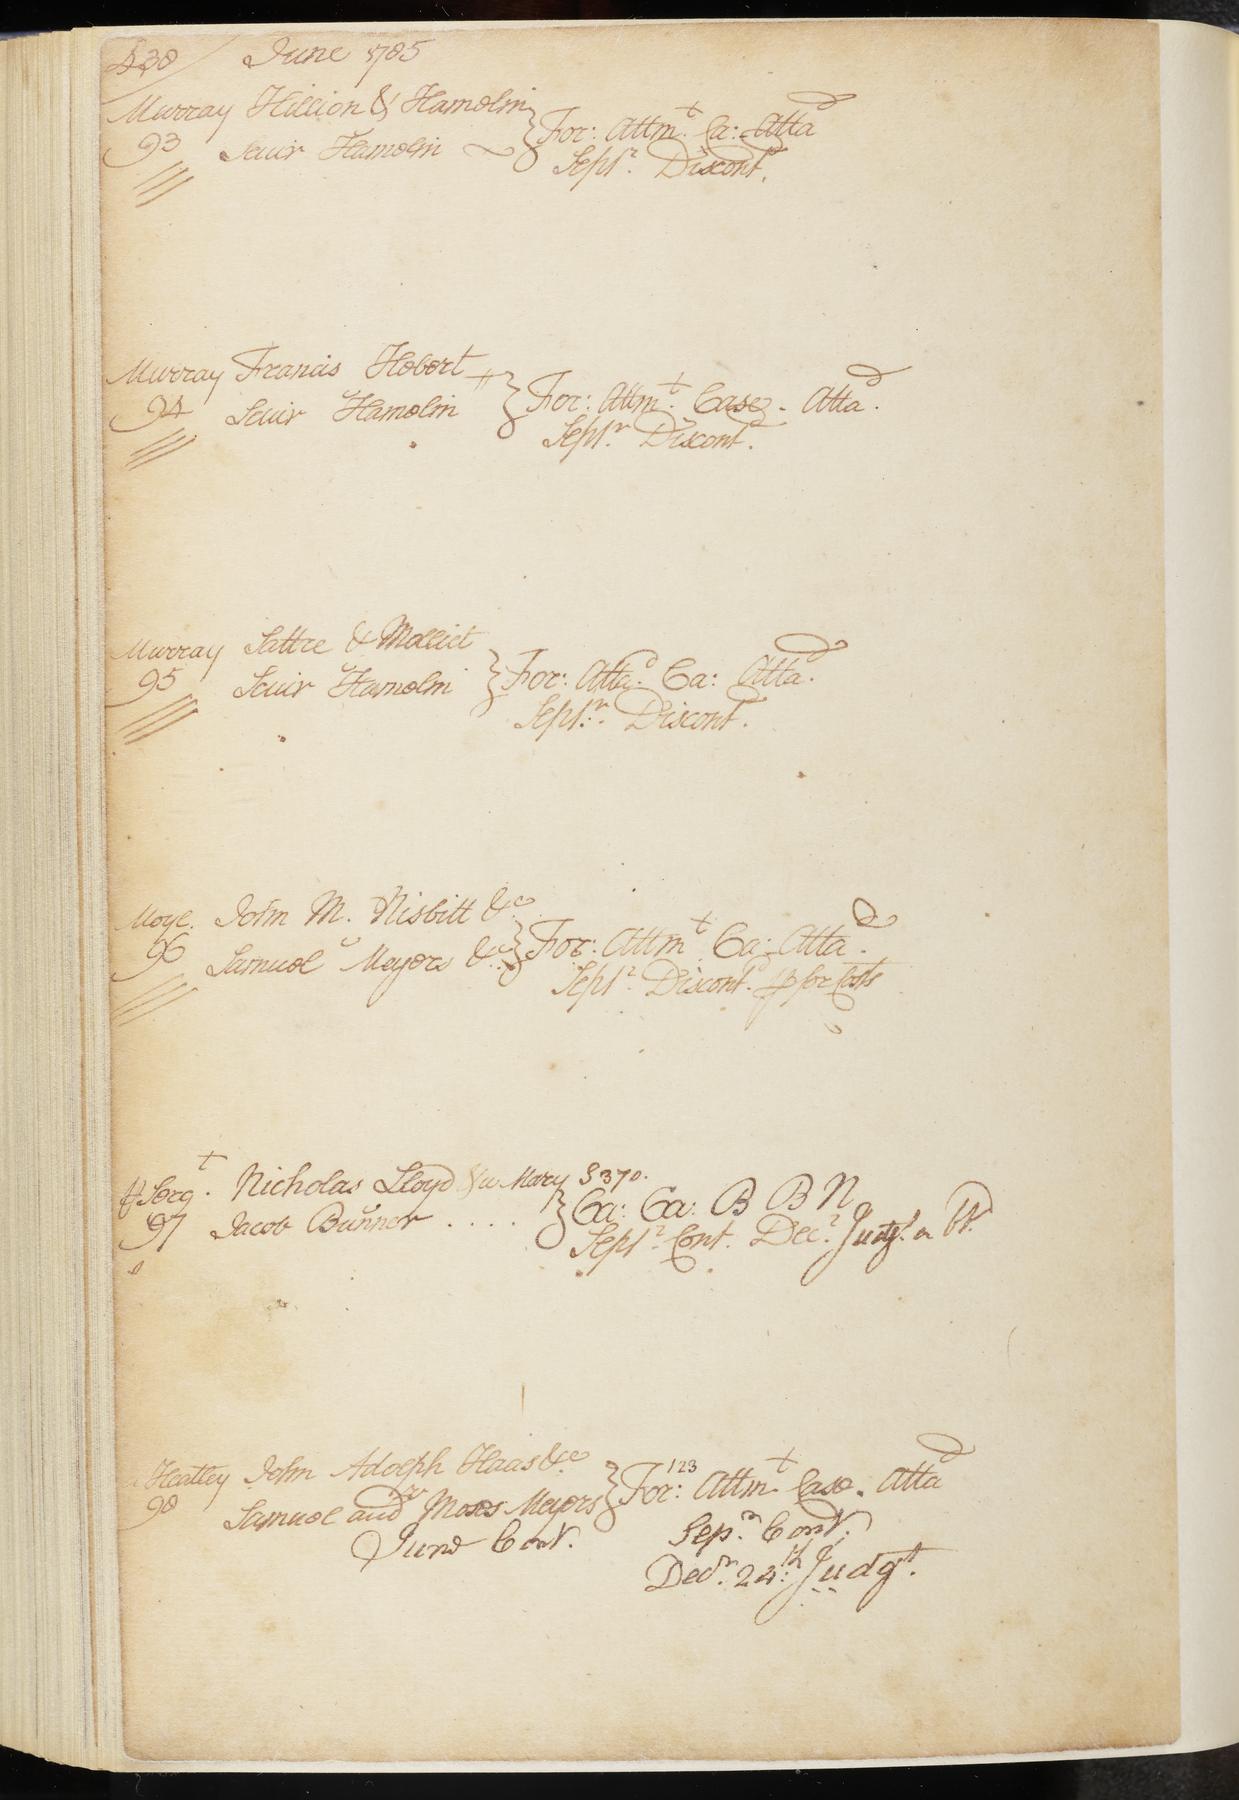 438 June 1785
Murray Hillion & Hamolin
93 Seuir Hamolin } For: Attmt. Ca: Attad
Septr. Discontd.
Murray Francis Hobert
94 Seuir Hamolin } For: Attmt. Case - Attad.
Septr. Discontd.
Murray Sattre & Molliet
95 Seuir Hamolin } For: Attad. Ca: Attad.
Septr. Discontd.
Moyl. John M. Nisbitt &c
96 Samuel Meyers &c. } For: Attmt. Ca: Attad.
Septr. Discontd. for Costs
Sergt. Nicholas Lloyd & u Mary S 370.
97 Jacob Bunner .... } Ca: Ca: B B N
Septr. Cont. Decr. Judgt. a W.
Heatley John Adolph Haas &c.
98 Samuel and Moses Meyers } For: 123 Attmt. Case. Attad
June Cont. Sepr. Cont.
Decr. 24th. Judgt.